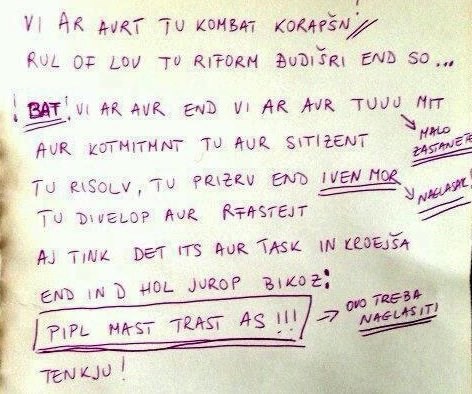 VI AR AVRT TU KOMBAT KORAPŠN!
RUL OF LOV TU RIFORM ĐUDIŠRI END SO...
! BAT! VI AR AVR END VI AR AVR TUUU MIT
MALO
ZASTANETE
AUR KOTMITMNT TU AUR SITIZENT
TU RISOLV, TU PRIZRV END IVEN MOR
NAGLASAK!
TU DIVELOP AUR RFASTEJT
AJ TINK DET ITS AUR TASK IN KROEJŠA
END IN D HOL JUROP BIKOZ:
PIPL MAST TRAST AS!!! → OVO TREBA
NAGLASITI
TENKJU!